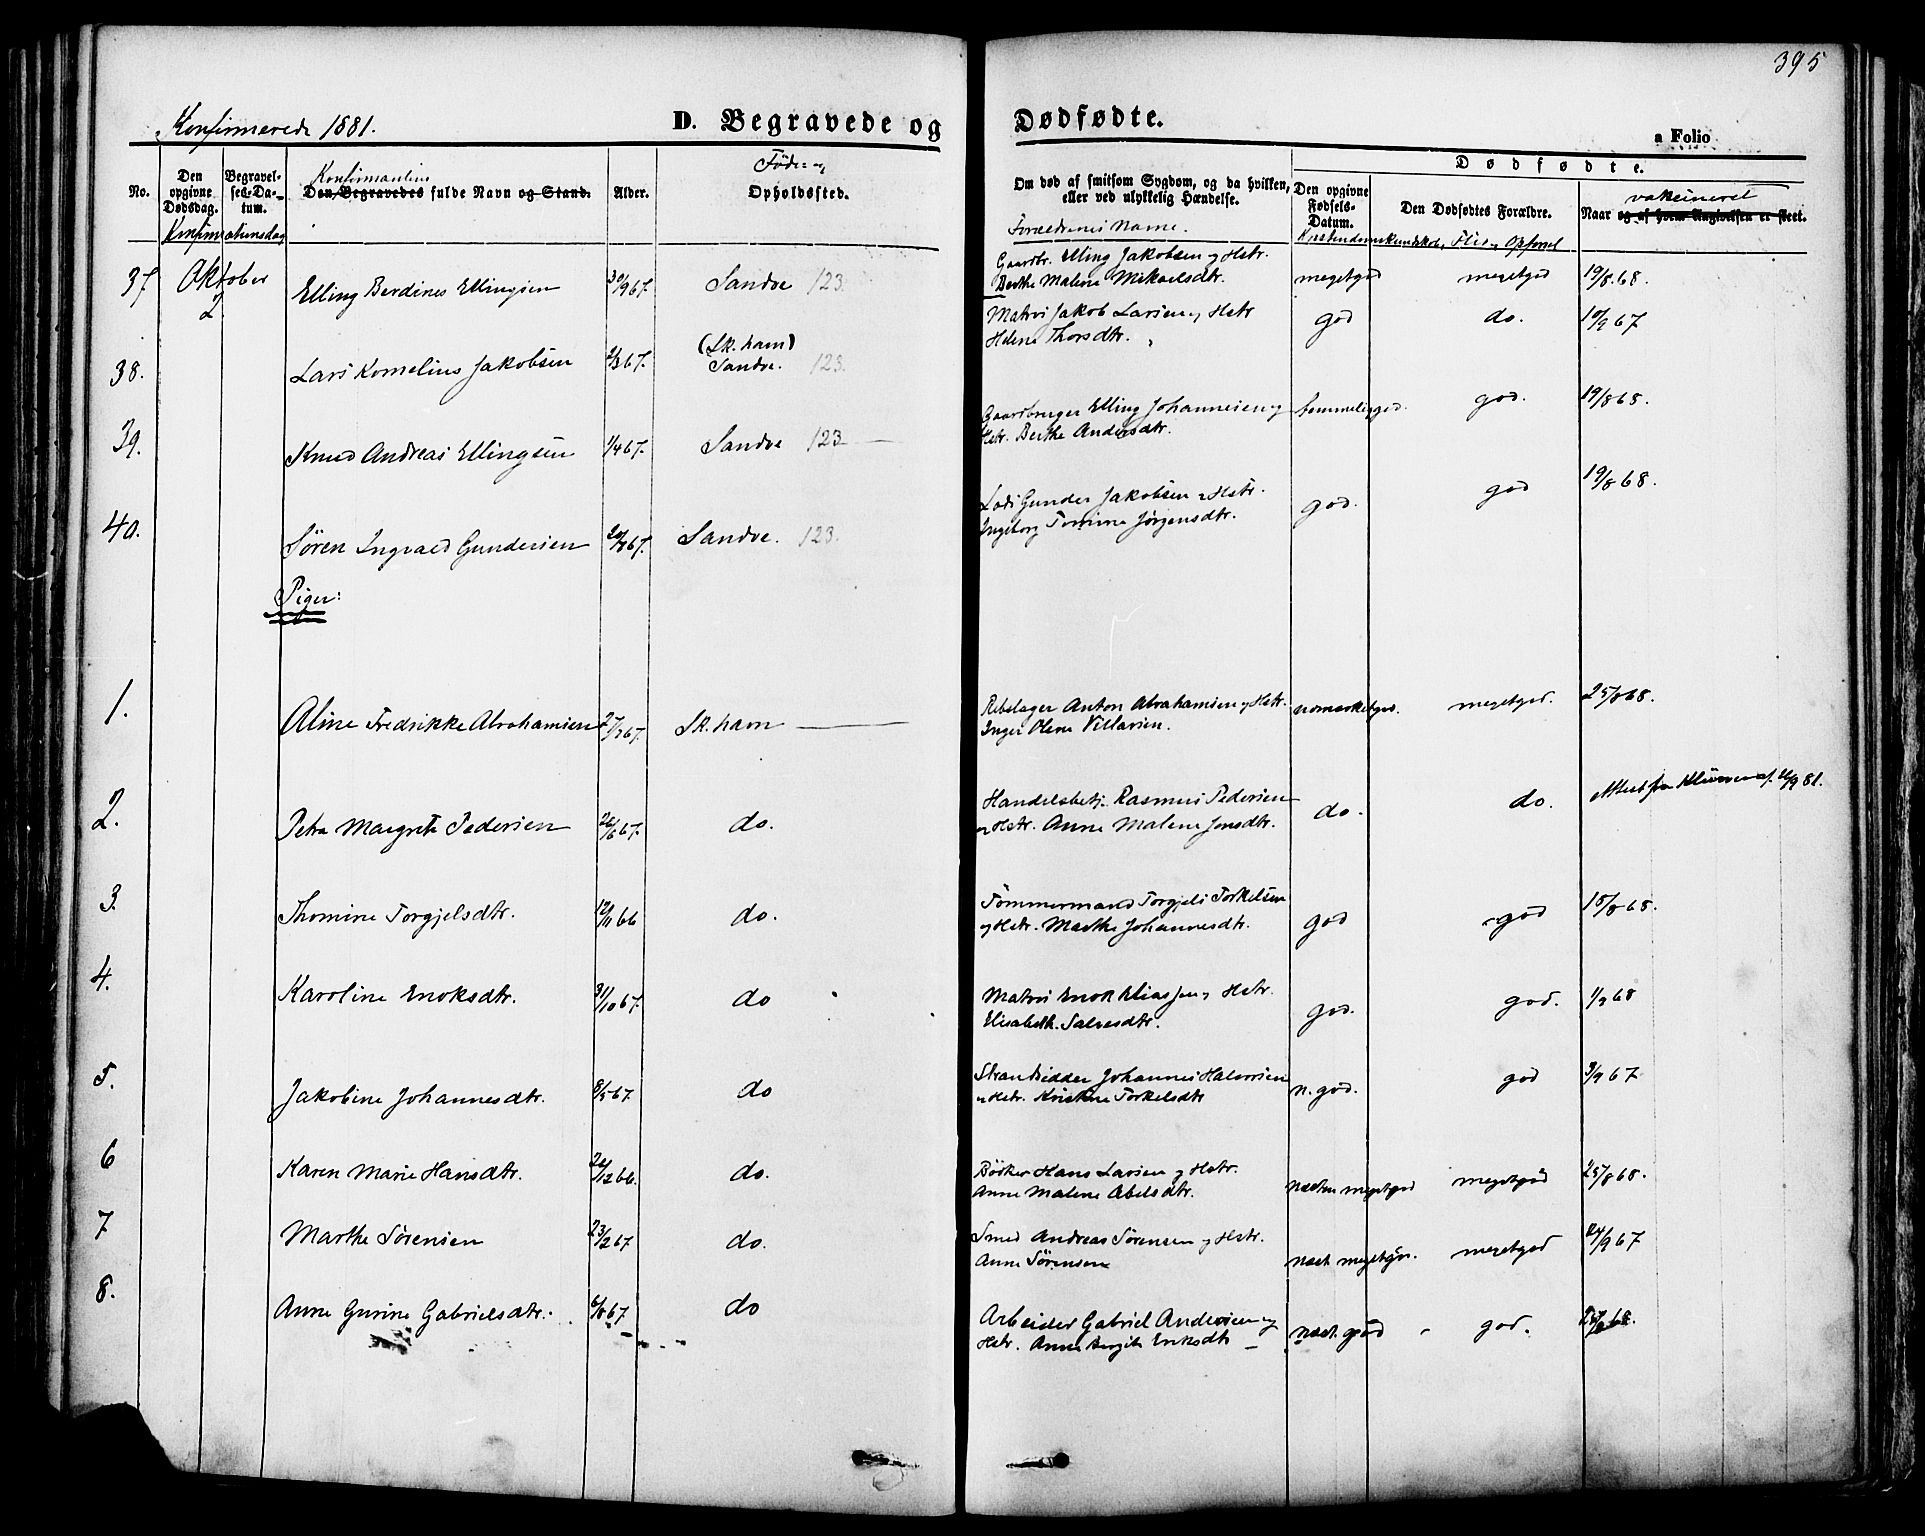 395
Konfirmerede 1881.
D. Begravede og Dødfødte.
a Folio
No.
Den opgivne Dødsdag.
Begravelses-Datum.
Konfirmationsdag
Konfirmantens
Den Begravedes fulde Navn og Stand.
Alder.
Føde- og
Opholdssted.
Om død af smitsom Sygdom, og da hvilken,
eller ved ulykkelig Hændelse.
Forældrenes Navne.
Dødfødte.
Den opgivne Fødsels-Datum.
Den Dødfødtes Forældre.
vakcineret
Naar og af hvem Angivelsen er skeet.
Kristendomskundskab, Flid og Opførsel
37 Oktober 2 Elling Berdines Ellingsen 30/9 67. Sandve 123.
Gaardbr. Elling Jakobsen og Hstr.
Berthe Malene Mikaelsdtr. megetgod megetgod 19/8 68.
38. Lars Kornelius Jakobsen 2/3 67. (Sk.havn) Sandve. 123.
Matros Jakob Larsen og Hstr
Helene Thorsdtr. god do. 19/9 67
39. Knud Andreas Ellingsen 1/4 67. Sandve 123
Gaardbruger Elling Johannesen og
Hstr. Berthe Andersdtr. temmeliggod. god. 19/8 68.
40. Søren Ingvald Gundersen 20/8 67. Sandve. 123.
Lods Gunder Jakobsen og Hstr.
Ingeborg Tomine Jørgensdtr. god. god 19/8 68.
Piger:
1. Aline Fredrikke Abrahamsen 27/7 67. Sk.havn
Rebslager Anton Abrahamsen og Hstr.
Inger Olene Villarsen. megetgod. 25/8 68.
2. Petra Margrete Pedersen 26/6 67. do.
Handelsbetj. Rasmus Pedersen
og Hstr. Anne Malene Jonsdtr. do. do. Attest fra 9 81.
3. Thomine Torgjelsdtr. 12/11 66 do.
Tømmermand Torgjels Torkelsen
og Hstr. Marthe Johannesdtr. god god 18/8 68.
4. Karoline Enoksdtr. 31/10 67. do
Matros Enok Eliassen og Hstr.
Elisabeth Salvesdtr. god. god. 1/9 68
5. Jakobine Johannesdtr. 8/5 67 do
Strandsidder Johannes Halvorsen
og Hstr. Kristine Torkelsdtr n. god. god 3/9 67
6 Karen Marie Hansdtr. 26/12 66. do.
Bødker Hans Larsen og Hstr.
Anne Malene Abelsdtr. næsten megetgod megetgod 25/8 68.
7 Marthe Sørensen 23/2 67 do.
Smed Andreas Sørensen og Hstr.
Anne Sørensen næst. megetgod. megetgod 24/9 67
8. Anne Gurine Gabrielsdtr. 6/8 67 do
Arbeider Gabriel Andersen og
Hstr. Anne Bergite Eriksdtr næst. god god. 68.